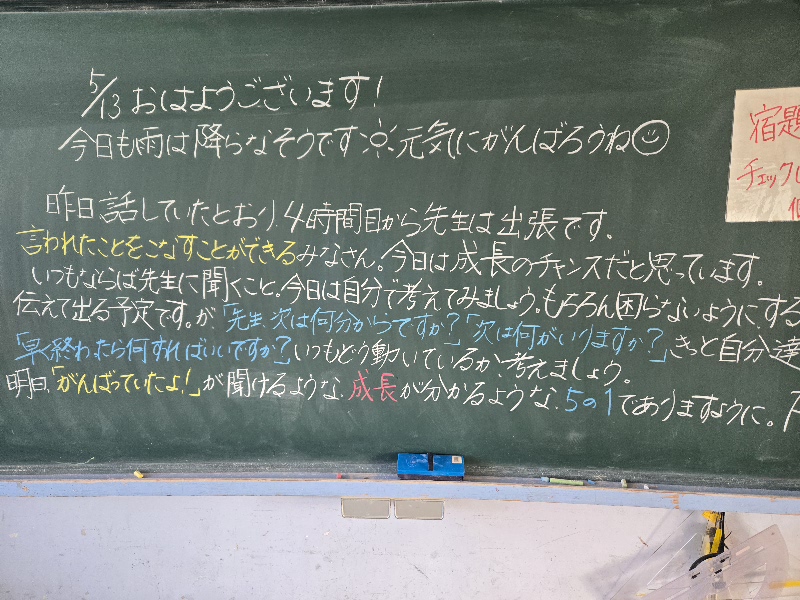 5/13 おはようございます!
今日も雨は降らなそうです☀元気にがんばろうね☺
昨日話していたとおり、4時間目から先生は出張です。
言われたことをこなすことができるみなさん。今日は成長のチャンスだと思っています。
いつもならば先生に聞くこと。今日は自分で考えてみましょう。もちろん困らないように、する
伝えて出る予定です。が、「先生、次は何分からですか?」「次は何がいりますか?」きっと自分達
「早く終わったら何すればいいですか?」いつもどう動いているか、考えましょう。
明日、「がんばっていたよ!」が聞けるような、成長が分かるような、5の1でありますように。
宿題
チェック